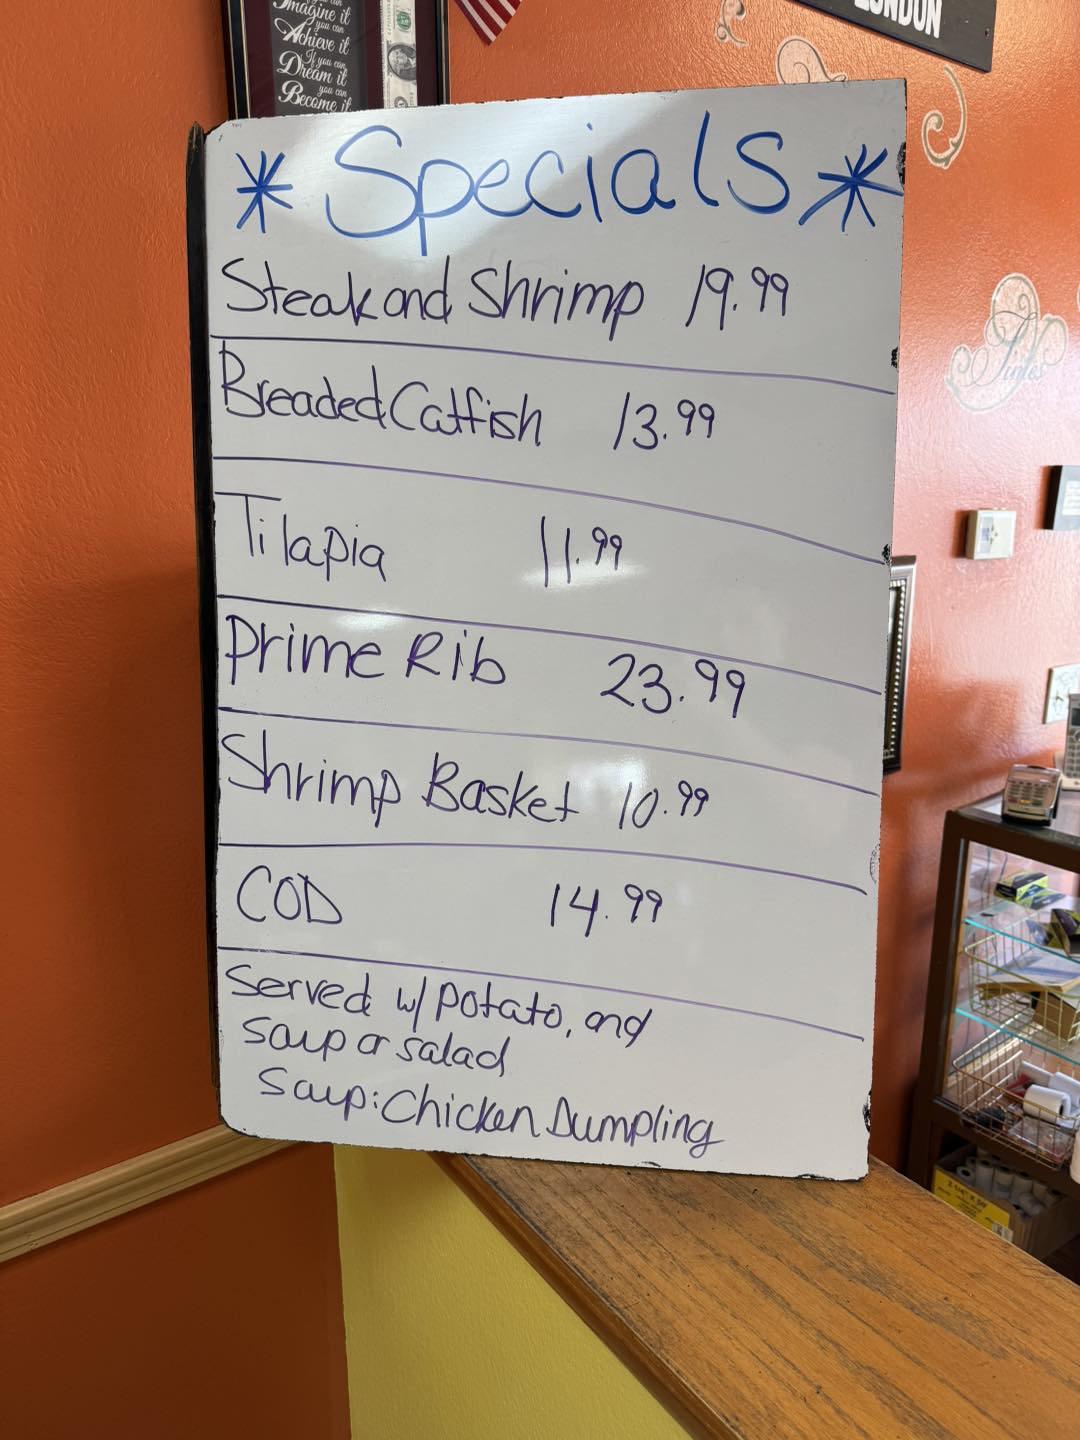 Imagine it
you can
Achieve it
If you can
Dream it
you can
Become it
LONDON
* Specials *
Steak and Shrimp 19.99
Breaded Catfish 13.99
Tilapia 11.99
Prime Rib 23.99
Shrimp Basket 10.99
COD 14.99
Served w/ Potato, and
Soup or salad
Soup: Chicken Dumpling